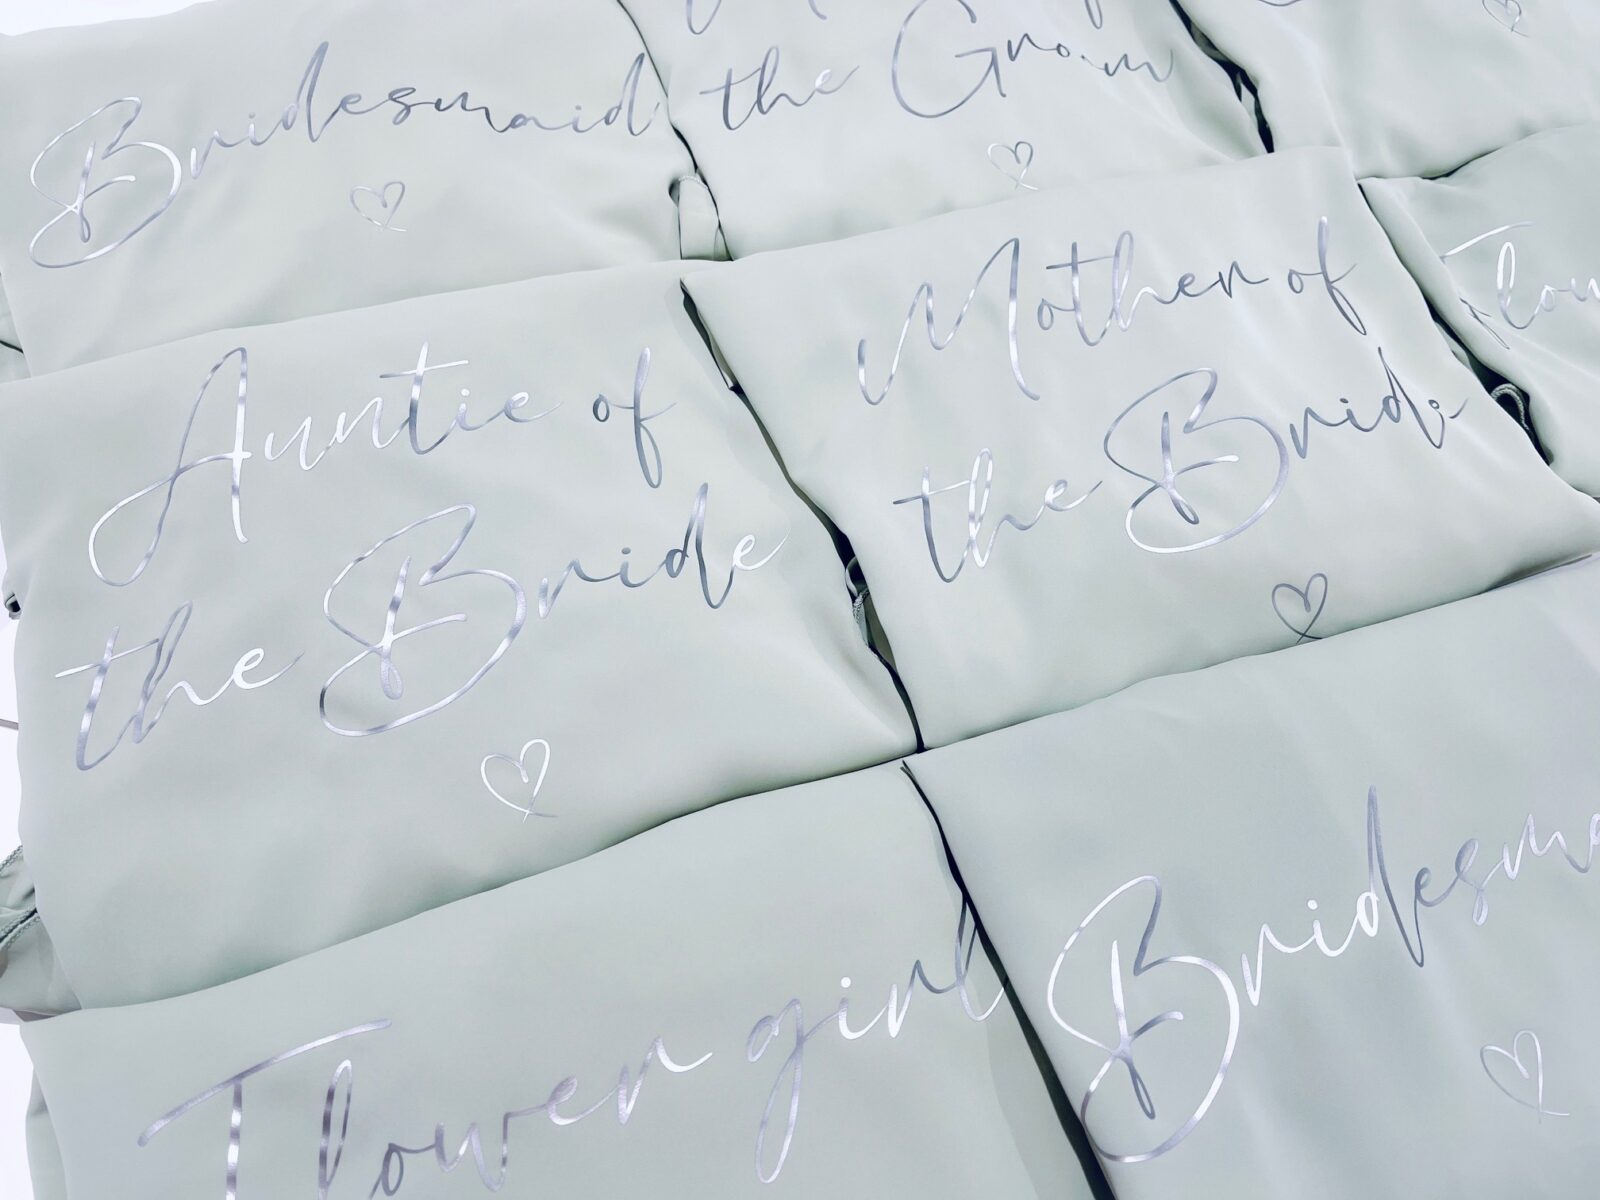 Bridesmaid
the Groom
Auntie of
the Bride
Mother of
the Bride
Flower girl